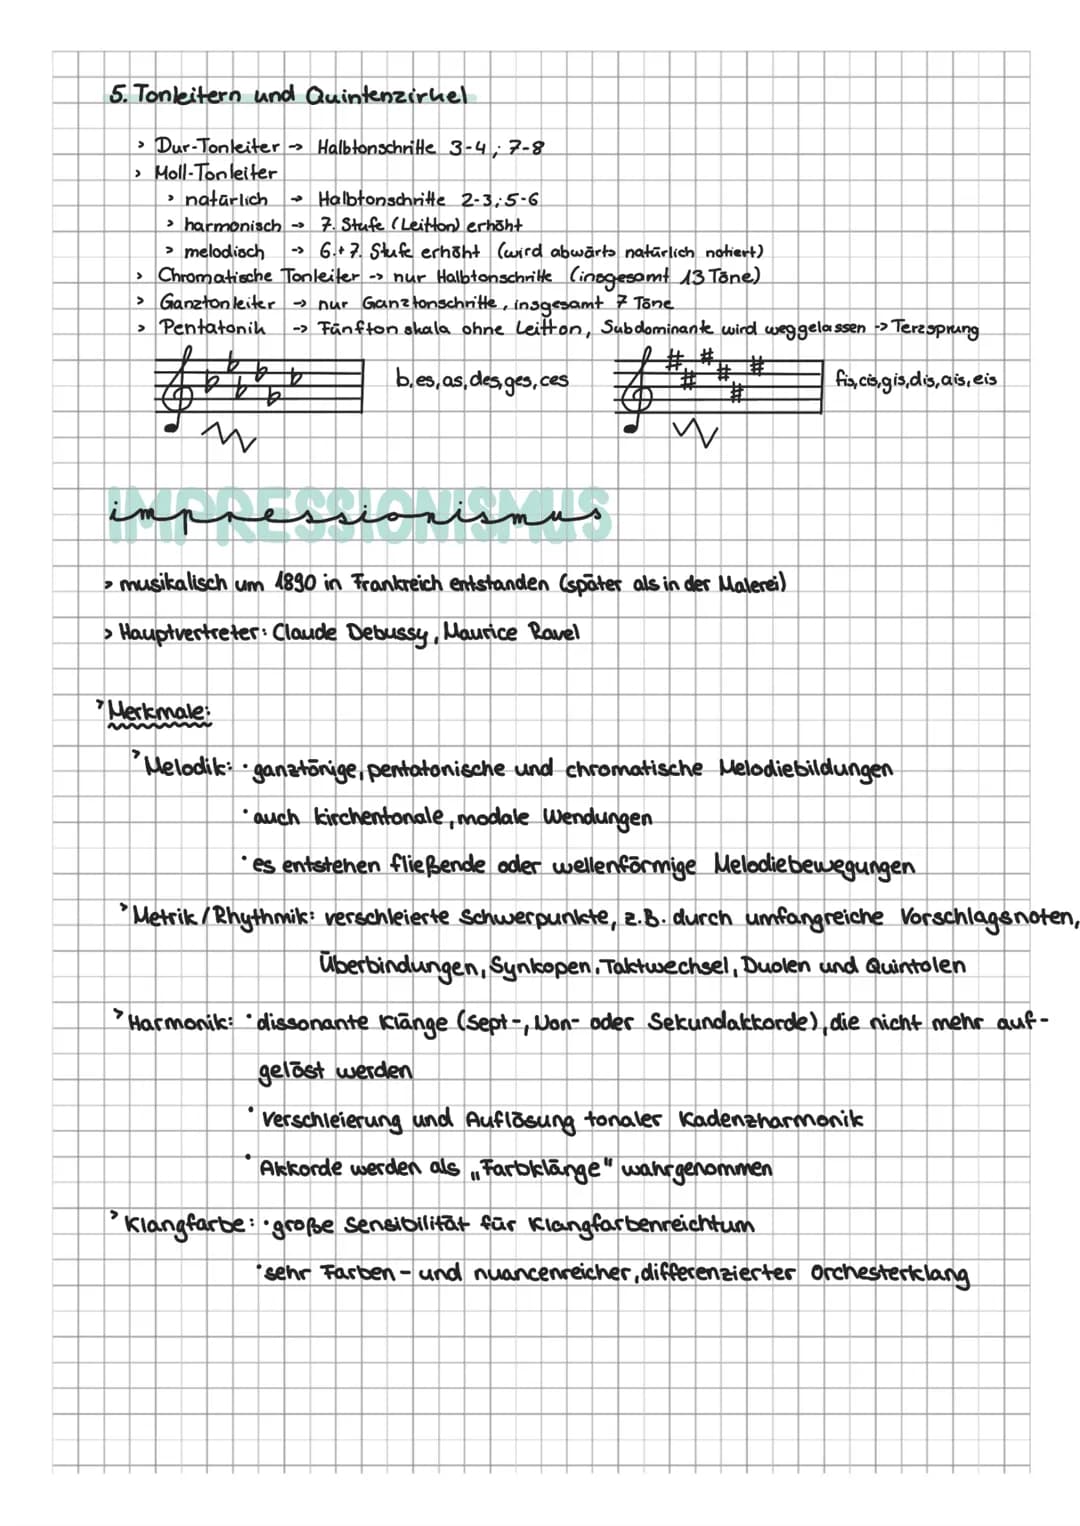 5. Tonleitern und Quintenzirkel
> Dur-Tonleiter -> Halbtonschritte 3-4; 7-8
> Moll-Tonleiter
> natürlich -> Halbtonschritte 2-3; 5-6
> harmonisch -> 7. Stufe (Leitton) erhöht
> melodisch -> 6.+7. Stufe erhöht (wird abwärts natürlich notiert)
> Chromatische Tonleiter -> nur Halbtonschritte (insgesamt 13 Töne)
> Ganztonleiter -> nur Ganztonschritte, insgesamt 7 Töne
> Pentatonik -> Fünftonskala ohne Leitton, Subdominante wird weggelassen -> Terzsprung
b, es, as, des, ges, ces
fis, cis, gis, dis, ais, eis
IMPRESSIONISMUS
impressionismus
> musikalisch um 1890 in Frankreich entstanden (später als in der Malerei)
> Hauptvertreter: Claude Debussy, Maurice Ravel
> Merkmale:
> Melodik: · ganztönige, pentatonische und chromatische Melodiebildungen
· auch kirchentonale, modale Wendungen
· es entstehen fließende oder wellenförmige Melodiebewegungen
> Metrik / Rhythmik: verschleierte Schwerpunkte, z.B. durch umfangreiche Vorschlagsnoten,
Überbindungen, Synkopen, Taktwechsel, Duolen und Quintolen
> Harmonik: · dissonante Klänge (Sept-, Non- oder Sekundakkorde), die nicht mehr auf-
gelöst werden
· Verschleierung und Auflösung tonaler Kadenzharmonik
· Akkorde werden als „Farbklänge" wahrgenommen
> Klangfarbe: · große Sensibilität für Klangfarbenreichtum
· sehr Farben- und nuancenreicher, differenzierter Orchesterklang